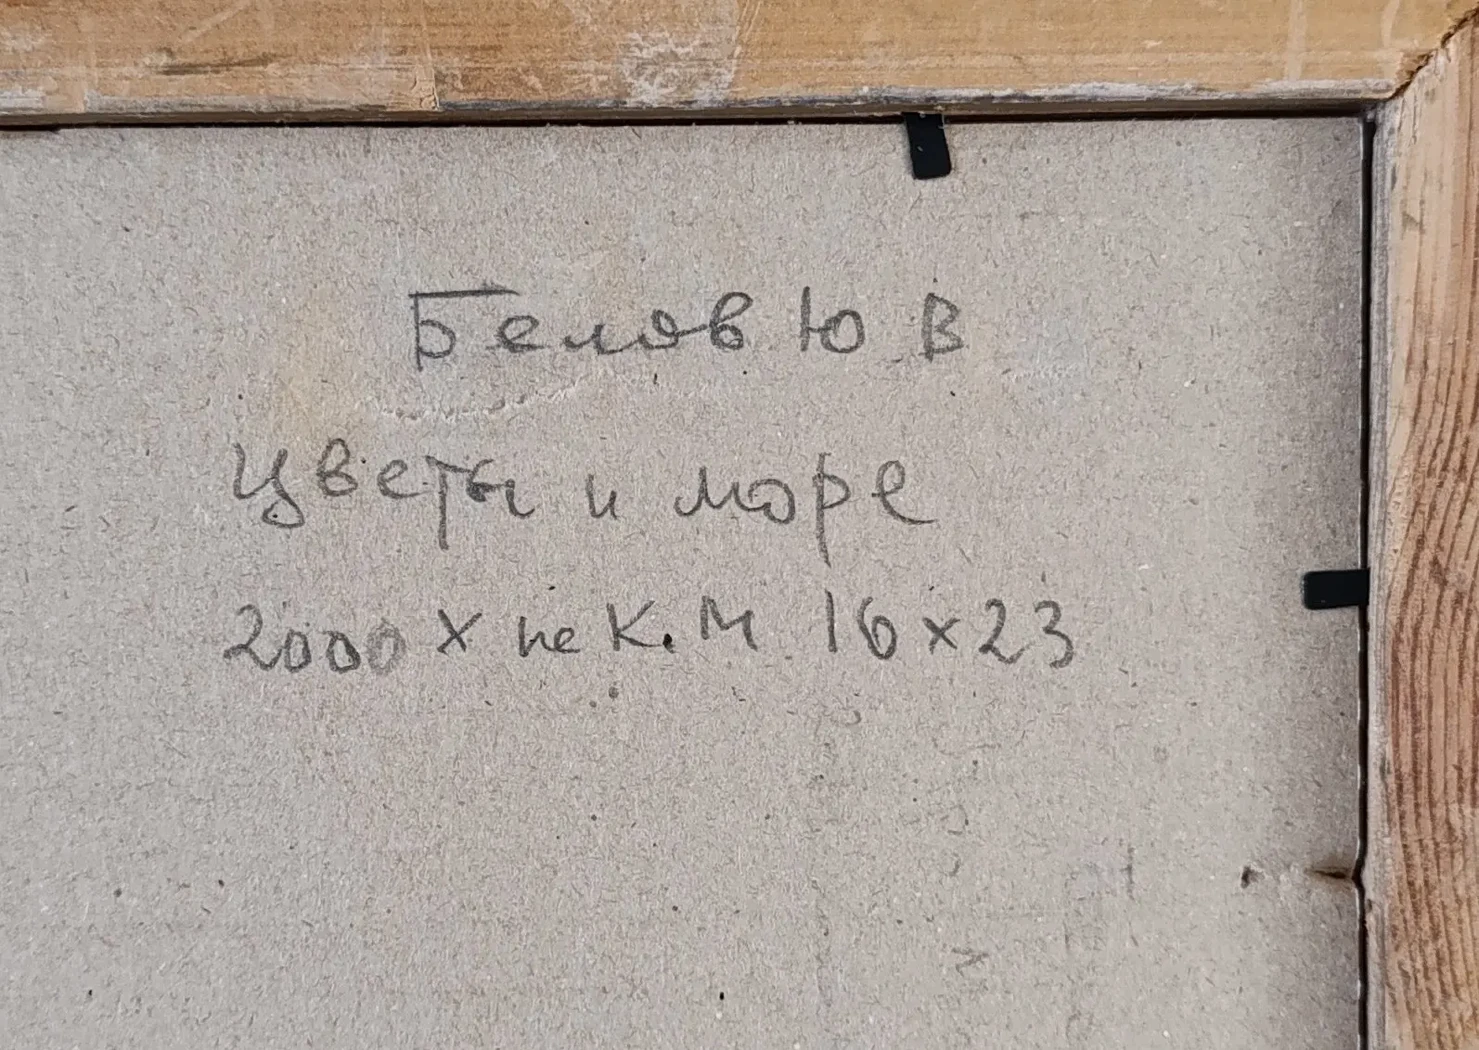 Белов Ю В
Цветы и море
2000 х не К. М 16х23